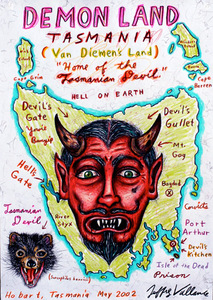 DEMON LAND
TASMANIA
(Van Diemen's Land)
"Home of the
Tasmanian Devil."
HELL ON EARTH
Cape Grim
Capt Barren
Devil's
Gate
Devil's
Gullet
Mt.
Gog
Hells
Gate
Bagdad X
Tasmanian
Devil
River
Styx
Convicts
Port
Arthur
Devil's
Kitchen
Isle of the Dead
Prison
Hobart, Tasmania May 2002
Jeffrey Vallance